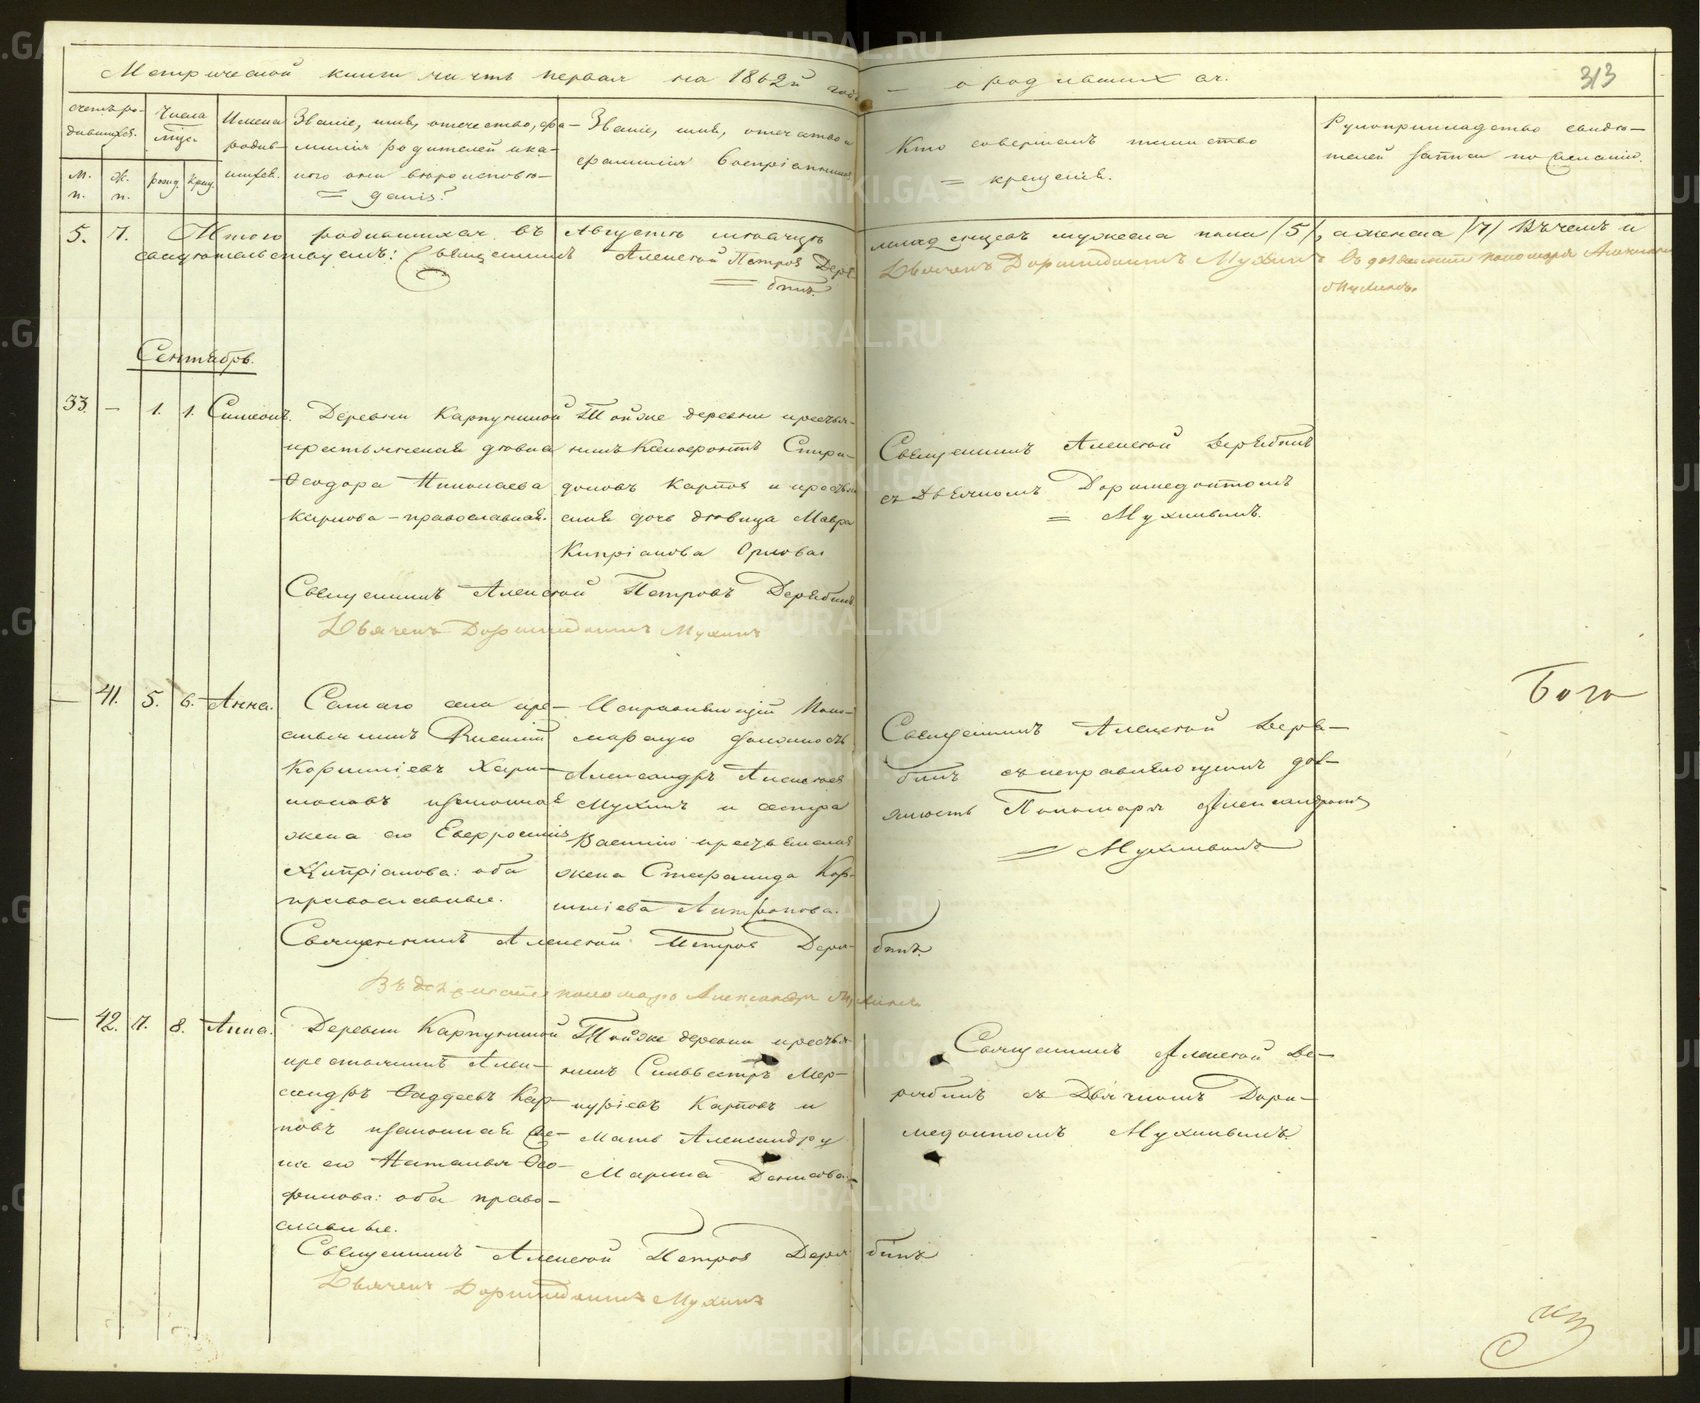 Метрической книги часть первая на 1862й годъ — о родившихся.
313
счетъ ро-
дившихся.
м. п.
ж. п.
Числа
мѣся.
рожд.
крещ.
Имена
родив-
шихся.
Званіе, имя, отечество, фа-
милія родителей и ка-
кого они вѣроисповѣ-
= данія?
Званіе, имя, отечество и
фамилія воспріемник
Кто совершалъ таинство
= крещенія.
Рукоприкладство свидѣ-
телей записи по желанію.
5. 7. Итого родившихся въ Августѣ мѣсяцѣ младенцевъ мужеска пола /5/, а женска /7/ Въ чемъ и
свидѣтельствуемъ: Священникъ Алексѣй Петровъ Деря-
= бинъ.
Дьячекъ Доримедонтъ Мухинъ
въ должности пономаря Александръ
Мухинъ.
Сентябрь.
33. — 1. 1. Симеонъ.
Деревни Карпушиной
крестьянская дѣвка
Ѳеодора Николаева
Карпова – православная.
Той же деревни крестья-
нинъ Ксенофонтъ Спири-
доновъ Карповъ и крестьян
ская дочь дѣвица Мавра
Кипріанова Орлова.
Священникъ Алексѣй Дерябинъ
съ Дьячкомъ Доримедонтомъ
= Мухинымъ.
Священникъ Алексѣй Петровъ Дерябинъ
Дьячекъ Доримедонтъ Мухинъ
— 41. 5. 6. Анна.
Самаго села кре-
стьянинъ
Корниліевъ Хари-
тоновъ и законная
жена его Евфросинія
Кипріанова: оба
православные.
Исправляющій Поно-
марскую должность
Александръ Алексѣевъ
Мухинъ и сестра
крестьянская
жена Стефанида Кор-
ниліева Антропова.
Священникъ Алексѣй Деря-
бинъ съ исправляющимъ дол-
жность Пономаря Александромъ
= Мухинымъ
Бого
Священникъ Алексѣй Петровъ Дерябинъ.
Въ должности пономаря Александръ Мухинъ
— 42. 7. 8. Анна.
Деревни Карпушиной
крестьянинъ Алек-
сандръ Ѳаддеевъ Кар-
повъ и законная же-
на его Наталья Ѳео-
фанова: оба право-
славные.
Той же деревни крестья-
нинъ Сильвестръ Мер-
куріевъ Карповъ и
Мать Александру
Марина Денисова.
Священникъ Алексѣй Де-
рябинъ съ Дьячкомъ Дори-
медонтомъ Мухинымъ.
Священникъ Алексѣй Петровъ Дерябинъ
Дьячекъ Доримедонтъ Мухинъ